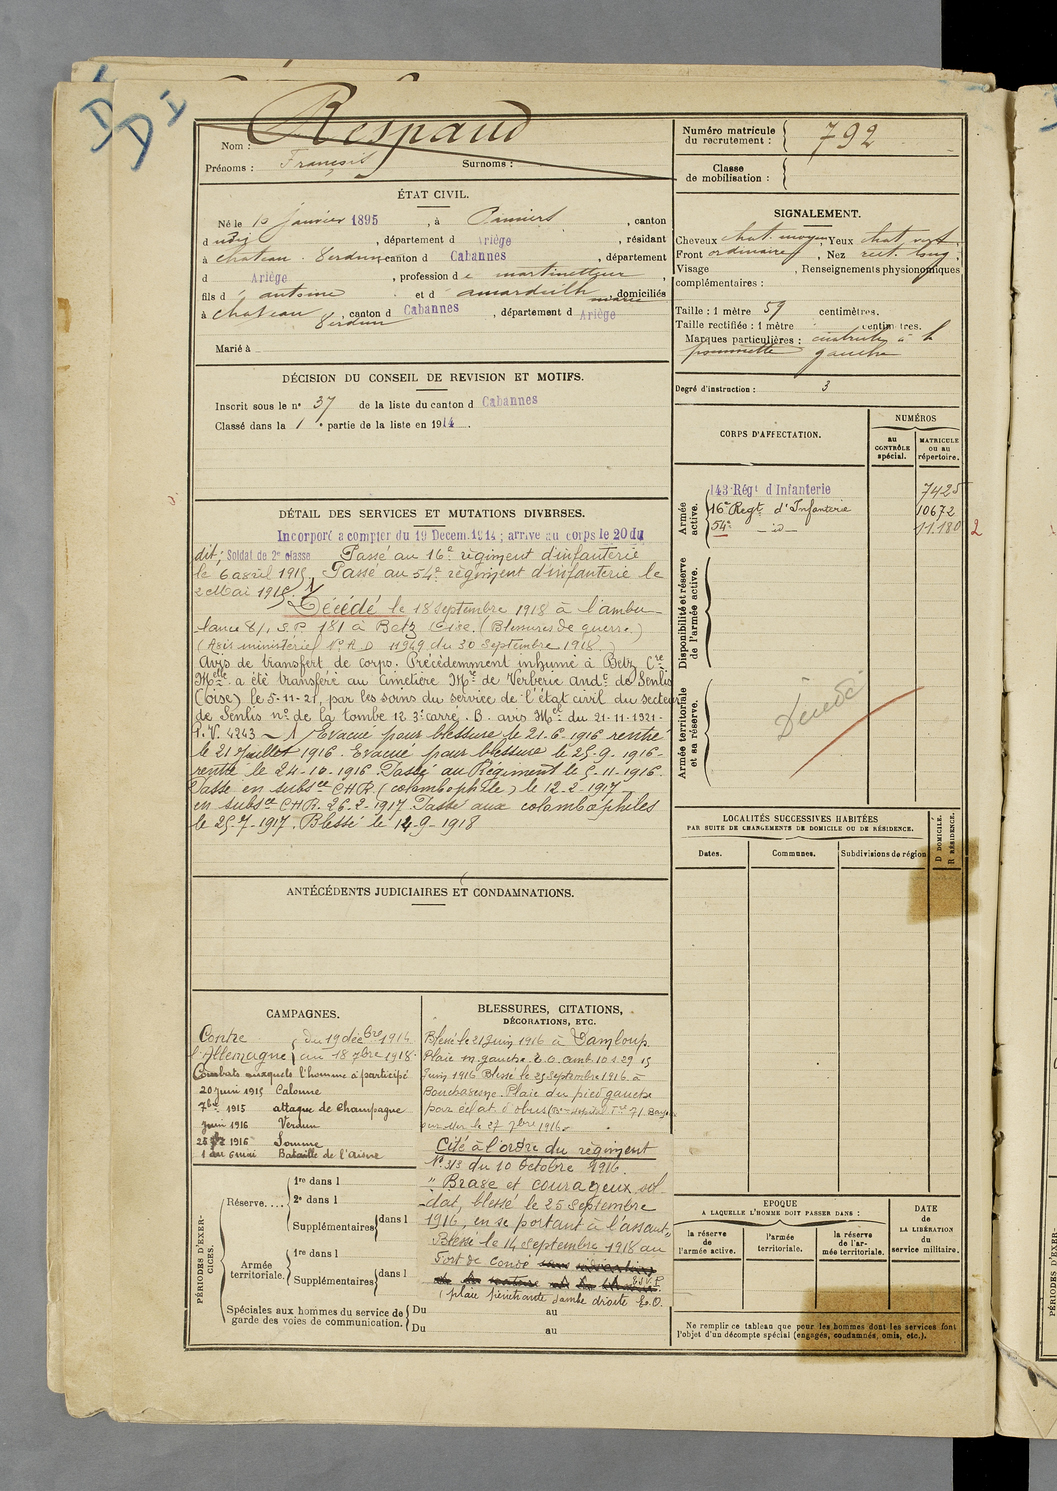 D I
D I
Nom : Respaud
Prénoms : François Surnoms :
Numéro matricule du recrutement : 792
Classe de mobilisation :
ÉTAT CIVIL.
Né le 10 janvier 1895, à Pamiers, canton
d udit, département d Ariège, résidant
à chateau-Verdun, canton d Cabannes, département
d Ariège, profession d e martinetteur,
fils d antoine et d amardeilh marie, domiciliés
à chateau Verdun, canton d Cabannes, département d Ariège
Marié à
SIGNALEMENT.
Cheveux chat. moyen, Yeux chat vert.
Front ordinaire, Nez rect. long;
Visage , Renseignements physionomiques
complémentaires :
Taille : 1 mètre 59 centimètres.
Taille rectifiée : 1 mètre centimètres.
Marques particulières : à la
pommette gauche
Degré d'instruction : 3
DÉCISION DU CONSEIL DE REVISION ET MOTIFS.
Inscrit sous le n° 37 de la liste du canton d Cabannes
Classé dans la 1e partie de la liste en 1914.
CORPS D'AFFECTATION.
NUMÉROS
au CONTRÔLE spécial.
MATRICULE ou au répertoire.
Armée active.
143 Régt d'Infanterie 7425
16e Regt d'Infanterie 10672
54e — id — 11.180 2
Disponibilité et réserve de l'armée active.
Armée territoriale et sa réserve.
Décédé
DÉTAIL DES SERVICES ET MUTATIONS DIVERSES.
Incorporé à compter du 19 Décem. 1914 ; arrive au corps le 20 du
dit; Soldat de 2e classe Passé au 16e régiment d'infanterie
le 6 avril 1915. Passé au 54e régiment d'infanterie le
2 Mai 1915. 1/
Décédé le 18 septembre 1918 à l'ambu-
lance 8/1, S.P. 181 à Betz Oise. (Blessures de guerre.)
(Avis ministériel N° A D 11949 du 30 septembre 1918.)
Avis de transfert de corps. Précédemment inhumé à Betz Cre
Melle a été transféré au cimetière Mre de Verberie andt de Senlis
(Oise) le 5-11-21, par les soins du service de l'état civil du secteur
de Senlis n° de la tombe 12 3e carré. B. avis Mel du 21-11-1921.
P.V. 4243 - 1/ Evacué pour blessure le 21-6-1916 rentré
le 21 juillet 1916. Evacué pour blessure le 25-9-1916-
rentré le 24-10-1916. Passé au Régiment le 5-11-1916.
Passé en subsce CHR. (colombophile) le 12-2-1917-
en subsce CHR. 26-2-1917. Passé aux colombophiles
le 25-7-1917. Blessé le 14-9-1918
LOCALITÉS SUCCESSIVES HABITÉES
PAR SUITE DE CHANGEMENTS DE DOMICILE OU DE RÉSIDENCE.
Dates. Communes. Subdivisions de région
D DOMICILE.
R RÉSIDENCE.
ANTÉCÉDENTS JUDICIAIRES ET CONDAMNATIONS.
CAMPAGNES.
Contre du 19 décbre 1914
l'Allemagne au 18 7bre 1918.
Combats auxquels l'homme a participé
20 juin 1915 Calonne
7bre 1915 attaque de Champagne
Juin 1916 Verdun
25 7bre 1916 Somme
1 au 6 mai Bataille de l'Aisne
BLESSURES, CITATIONS,
DÉCORATIONS, ETC.
Blessé le 21 juin 1916 à Damloup.
Plaie m. gauche E.O.
Juin 1916. Blessé le 25 septembre 1916 à
Bouchavesne. Plaie du pied gauche
par éclat d'obus
sur Mer le 27 7bre 1916.
Cité à l'ordre du régiment
N° 313 du 10 octobre 1916.
" Brave et courageux sol-
dat, blessé le 25 septembre
1916, en se portant à l'assaut "
Blessé le 14 septembre 1918 au
Fort de Condé
E.S.V.P.
plaie pénétrante jambe droite E.O.
PÉRIODES D'EXERCICES.
Réserve.... 1re dans l
2e dans l
Supplémentaires dans l
Armée territoriale. 1re dans l
Supplémentaires dans l
Spéciales aux hommes du service de garde des voies de communication. Du au
Du au
EPOQUE
A LAQUELLE L'HOMME DOIT PASSER DANS :
la réserve de l'armée active.
l'armée territoriale.
la réserve de l'armée territoriale.
DATE de LA LIBÉRATION du service militaire.
Ne remplir ce tableau que pour les hommes dont les services font
l'objet d'un décompte spécial (engagés, condamnés, omis, etc.).
PÉRIODES D'EXER